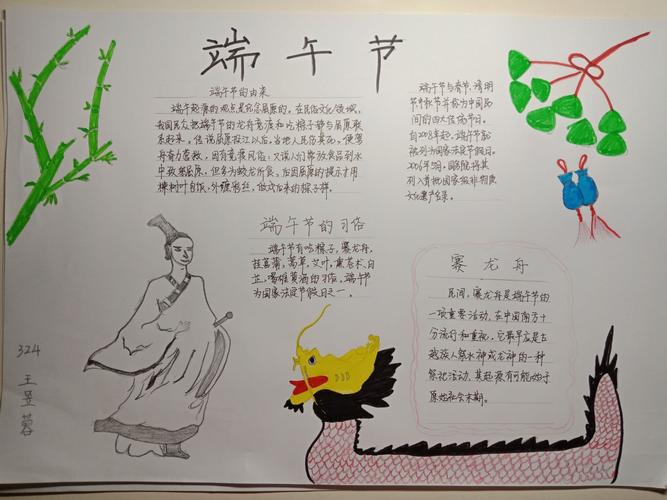 端午节
端午节的由来
端午起源的观点是纪念屈原的。在民俗文化领域,
我国民众把端午节的龙舟竞渡和吃粽子都与屈原联
系起来。传说屈原投江以后,当地人民伤其死,便驾
舟奋力营救,因有竞渡风俗;又说人们常放食品到水
中致祭屈原,但多为蛟龙所食,后因屈原的提示才用
楝树叶包饭,外缠彩丝,做成后来的粽子样。
端午节与春节、清明
节中秋节并称为中国民
间的四大传统节日。
自2008年起,端午节
被列为国家法定节假日。
2006年5月,国务院将其
列入首批国家级非物质
文化遗产名录。
端午节的习俗
端午节有吃粽子,赛龙舟,
挂菖蒲,蒿草,艾叶,薰苍术、白
芷,喝雄黄酒的习俗。端午节
为国家法定节假日之一。
赛龙舟
民间,赛龙舟是端午节的
一项重要活动,在中国南方十
分流行和重视,它最早应是古
越族人祭水神或龙神的一种
祭祀活动,其起源有可能始于
原始社会末期。
324
王昱蓉